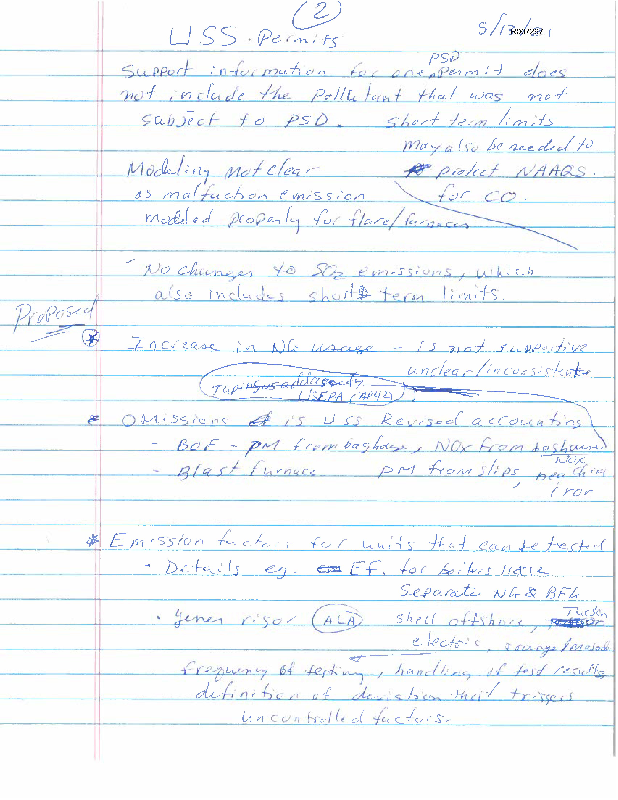 (2)
5/13/
USS. Permits
PSD
Support information for one permit does
not include the pollutant that was not
subject to PSD. short term limits
may also be needed to
Modeling not clear protect NAAQS.
as malfuction emission for CO.
modeled properly for flare/furnaces
No changes to SO2 emissions, which
also includes short term limits.
Proposed
* Increase in NG usage - is not supportive
unclear/inconsistent
USEPA (AP42)
* Omissions is USS Revised accounting
- BOF - PM from baghouse, NOx from baghouse
- Blast furnace PM from slips,
iron
* Emission factors for units that can be tested
• Details eg. EF. for boilers
Separate NG & BFG
• rigor (ALA) shell offshore, Tucson
electric,
frequency of testing, handling of test results
definition of deviation that triggers
uncontrolled factors.